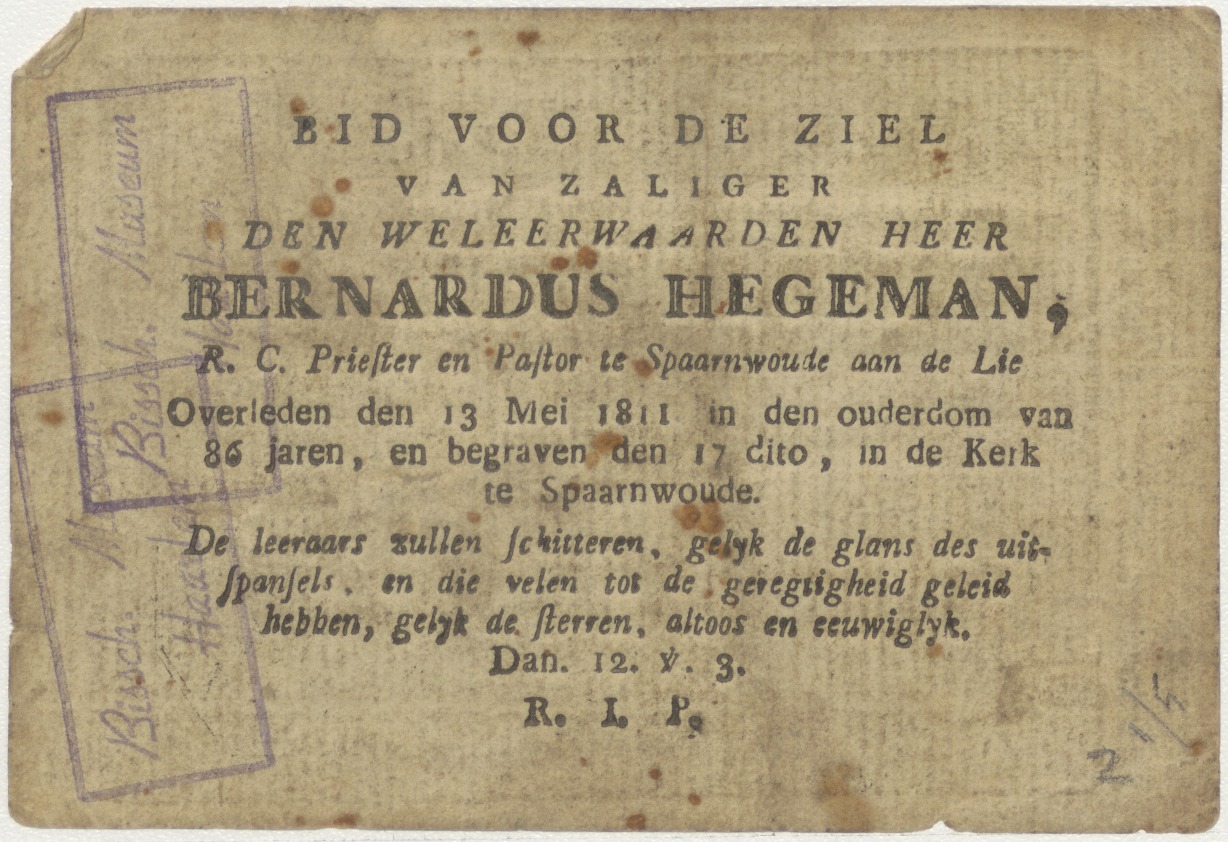 BID VOOR DE ZIEL
VAN ZALIGER
DEN WELEERWAARDEN HEER
BERNARDUS HEGEMAN,
R. C. Prieſter en Paſtor te Spaarnwoude aan de Lie
Overleden den 13 Mei 1811 in den ouderdom van
86 jaren, en begraven den 17 dito, in de Kerk
te Spaarnwoude.
De leeraars zullen ſchitteren, gelyk de glans des uit-
ſpanſels, en die velen tot de geregtigheid geleid
hebben, gelyk de ſterren, altoos en eeuwiglyk.
Dan. 12. ℣. 3.
R. I. P.
Bissch. Museum
Haarlem
Bissch. Museum
Haarlem
2 1/5